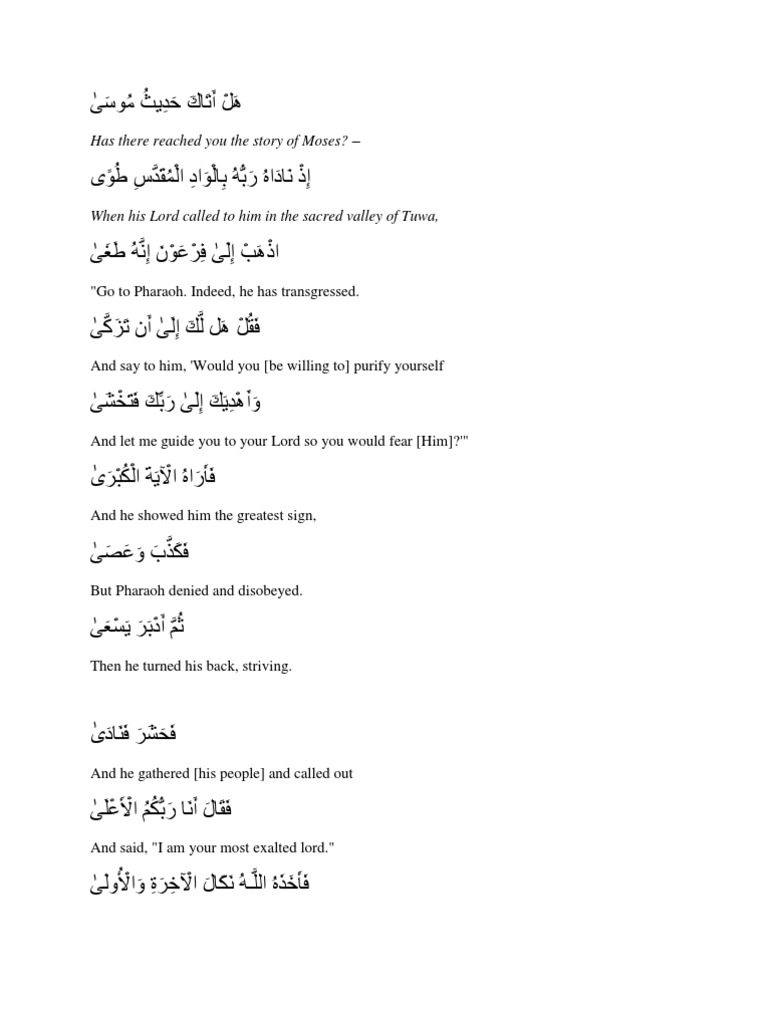 هَلْ أَتَاكَ حَدِيثُ مُوسَىٰ
Has there reached you the story of Moses? –
إِذْ نَادَاهُ رَبُّهُ بِالْوَادِ الْمُقَدَّسِ طُوًى
When his Lord called to him in the sacred valley of Tuwa,
اذْهَبْ إِلَىٰ فِرْعَوْنَ إِنَّهُ طَغَىٰ
"Go to Pharaoh. Indeed, he has transgressed.
فَقُلْ هَل لَّكَ إِلَىٰ أَن تَزَكَّىٰ
And say to him, 'Would you [be willing to] purify yourself
وَأَهْدِيَكَ إِلَىٰ رَبِّكَ فَتَخْشَىٰ
And let me guide you to your Lord so you would fear [Him]?'"
فَأَرَاهُ الْآيَةَ الْكُبْرَىٰ
And he showed him the greatest sign,
فَكَذَّبَ وَعَصَىٰ
But Pharaoh denied and disobeyed.
ثُمَّ أَدْبَرَ يَسْعَىٰ
Then he turned his back, striving.
فَحَشَرَ فَنَادَىٰ
And he gathered [his people] and called out
فَقَالَ أَنَا رَبُّكُمُ الْأَعْلَىٰ
And said, "I am your most exalted lord."
فَأَخَذَهُ اللَّـهُ نَكَالَ الْآخِرَةِ وَالْأُولَىٰ